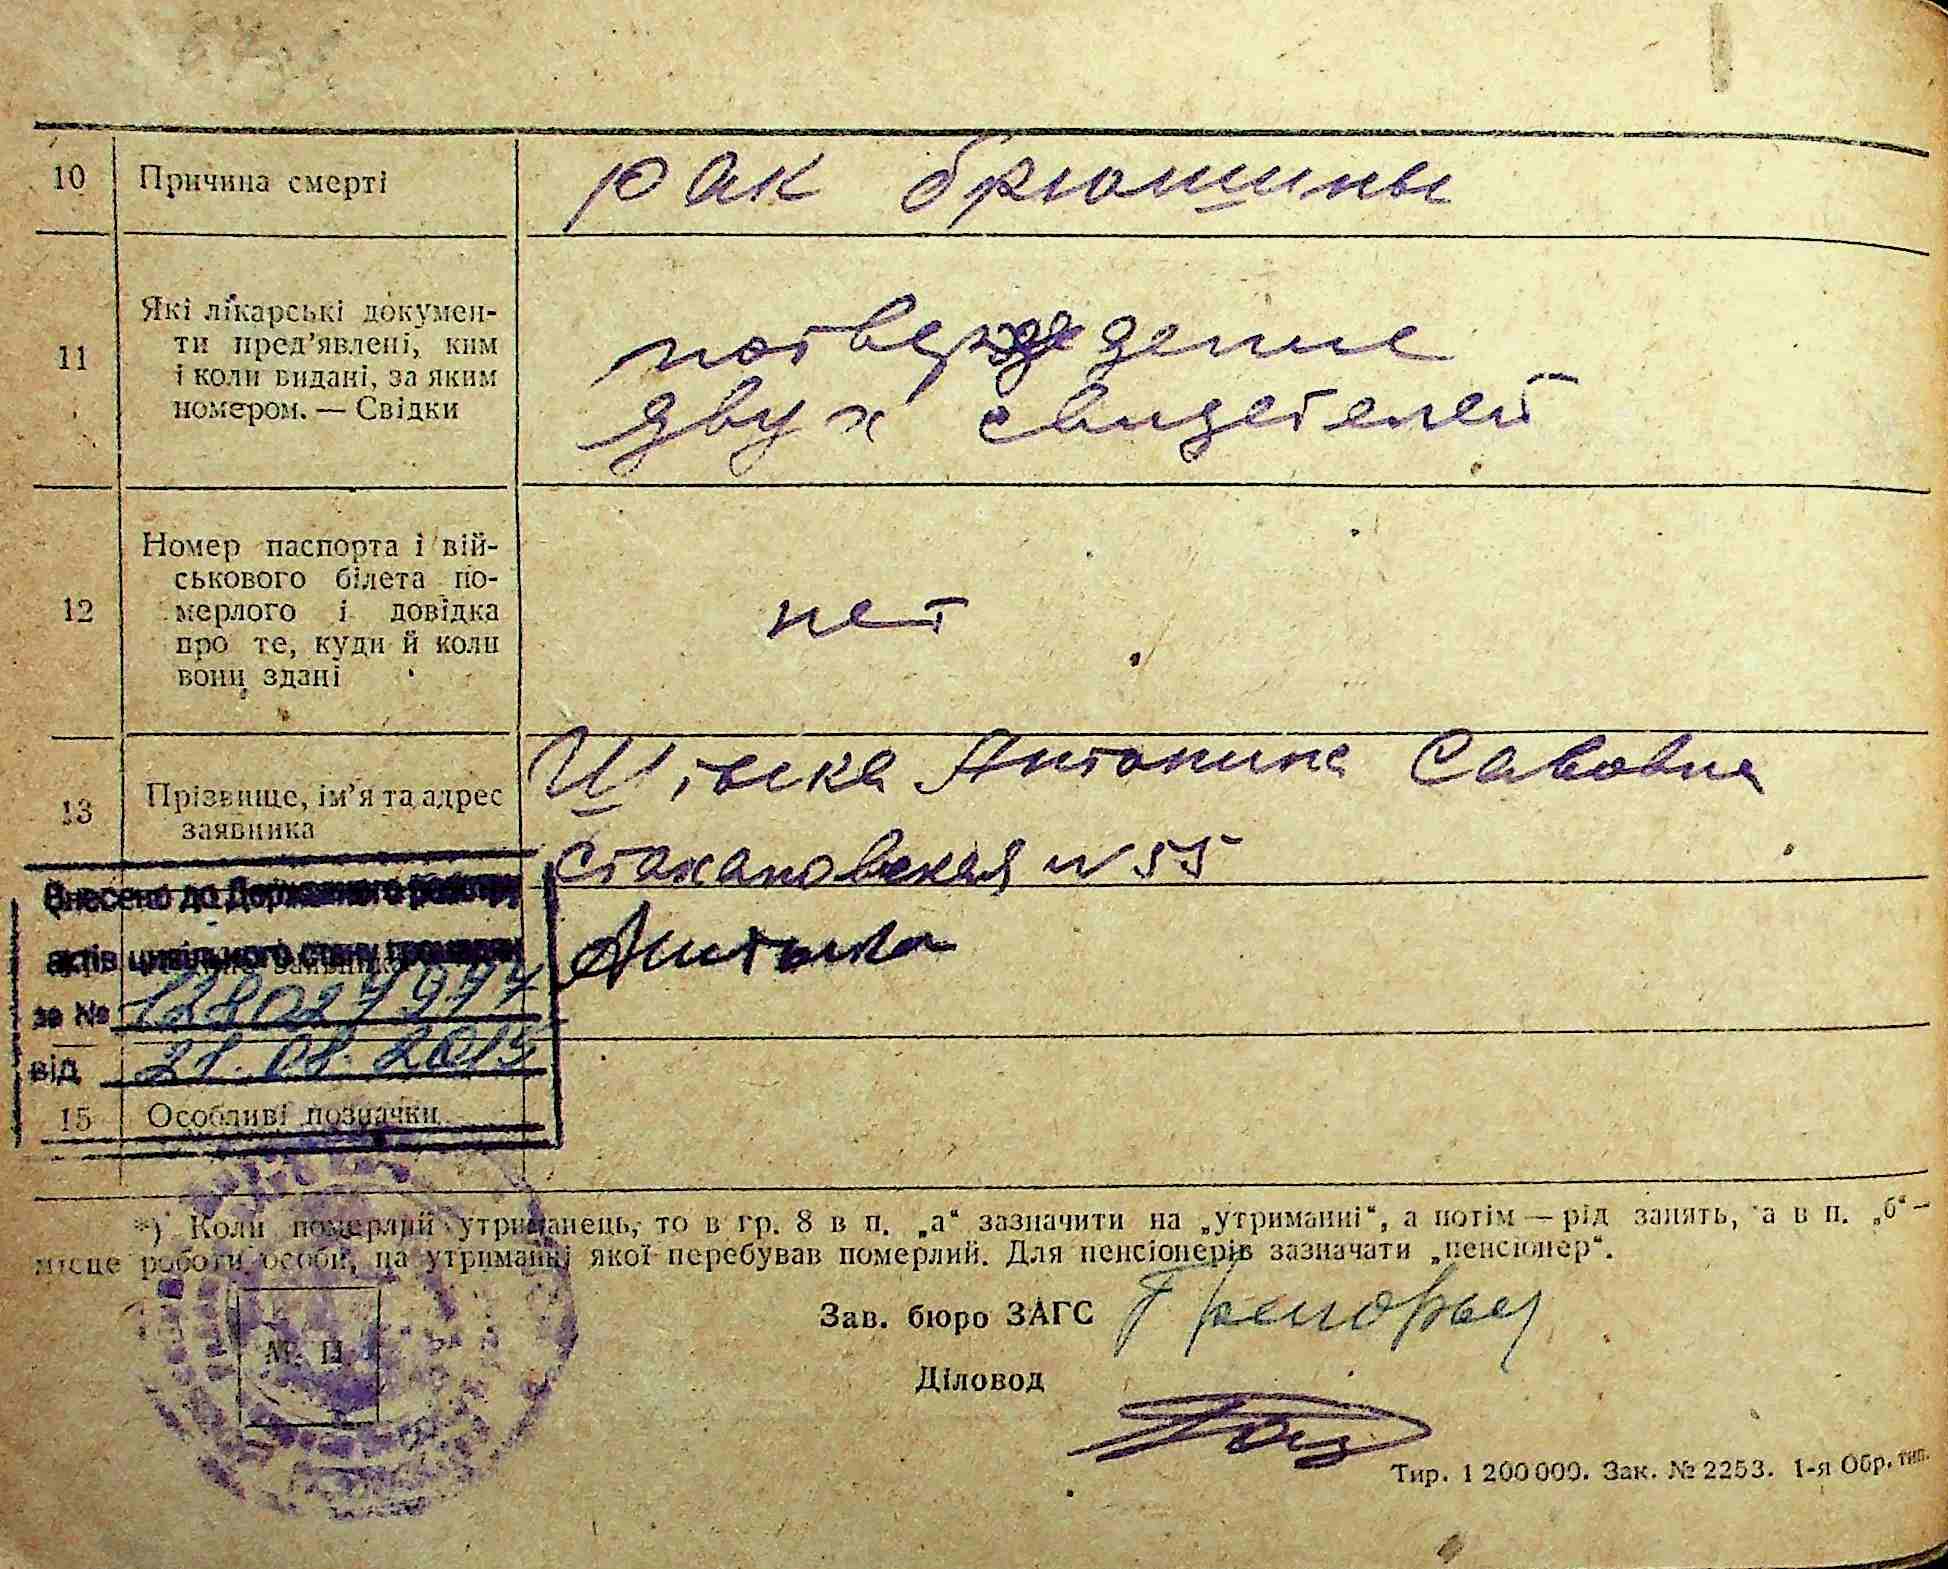 10 Причина смерті рак брюшины
11 Які лікарські докумен-
ти пред’явлені, ким
і коли видані, за яким
номером. — Свідки
потверждение
двух свидетелей
12 Номер паспорта і вій-
ськового білета по-
мерлого і довідка
про те, куди й коли
вони здані
нет
13 Прізвище, ім’я та адрес
заявника
Штыка Антонина Савовна
Стахановская №55
Внесено до Державного реєстру
актів цивільного стану громадян
за №
від 28.08.2015
15 Особливі позначки
*) Коли померлий утриманець, то в гр. 8 в п. „а“ зазначити на „утриманні“, а потім — рід занять, а в п. „б“ —
місце роботи особи, на утриманні якої перебував померлий. Для пенсіонерів зазначати „пенсіонер“.
М. П.
Зав. бюро ЗАГС
Діловод
Тир. 1 200 000. Зак. № 2253. 1-я Обр. тип.